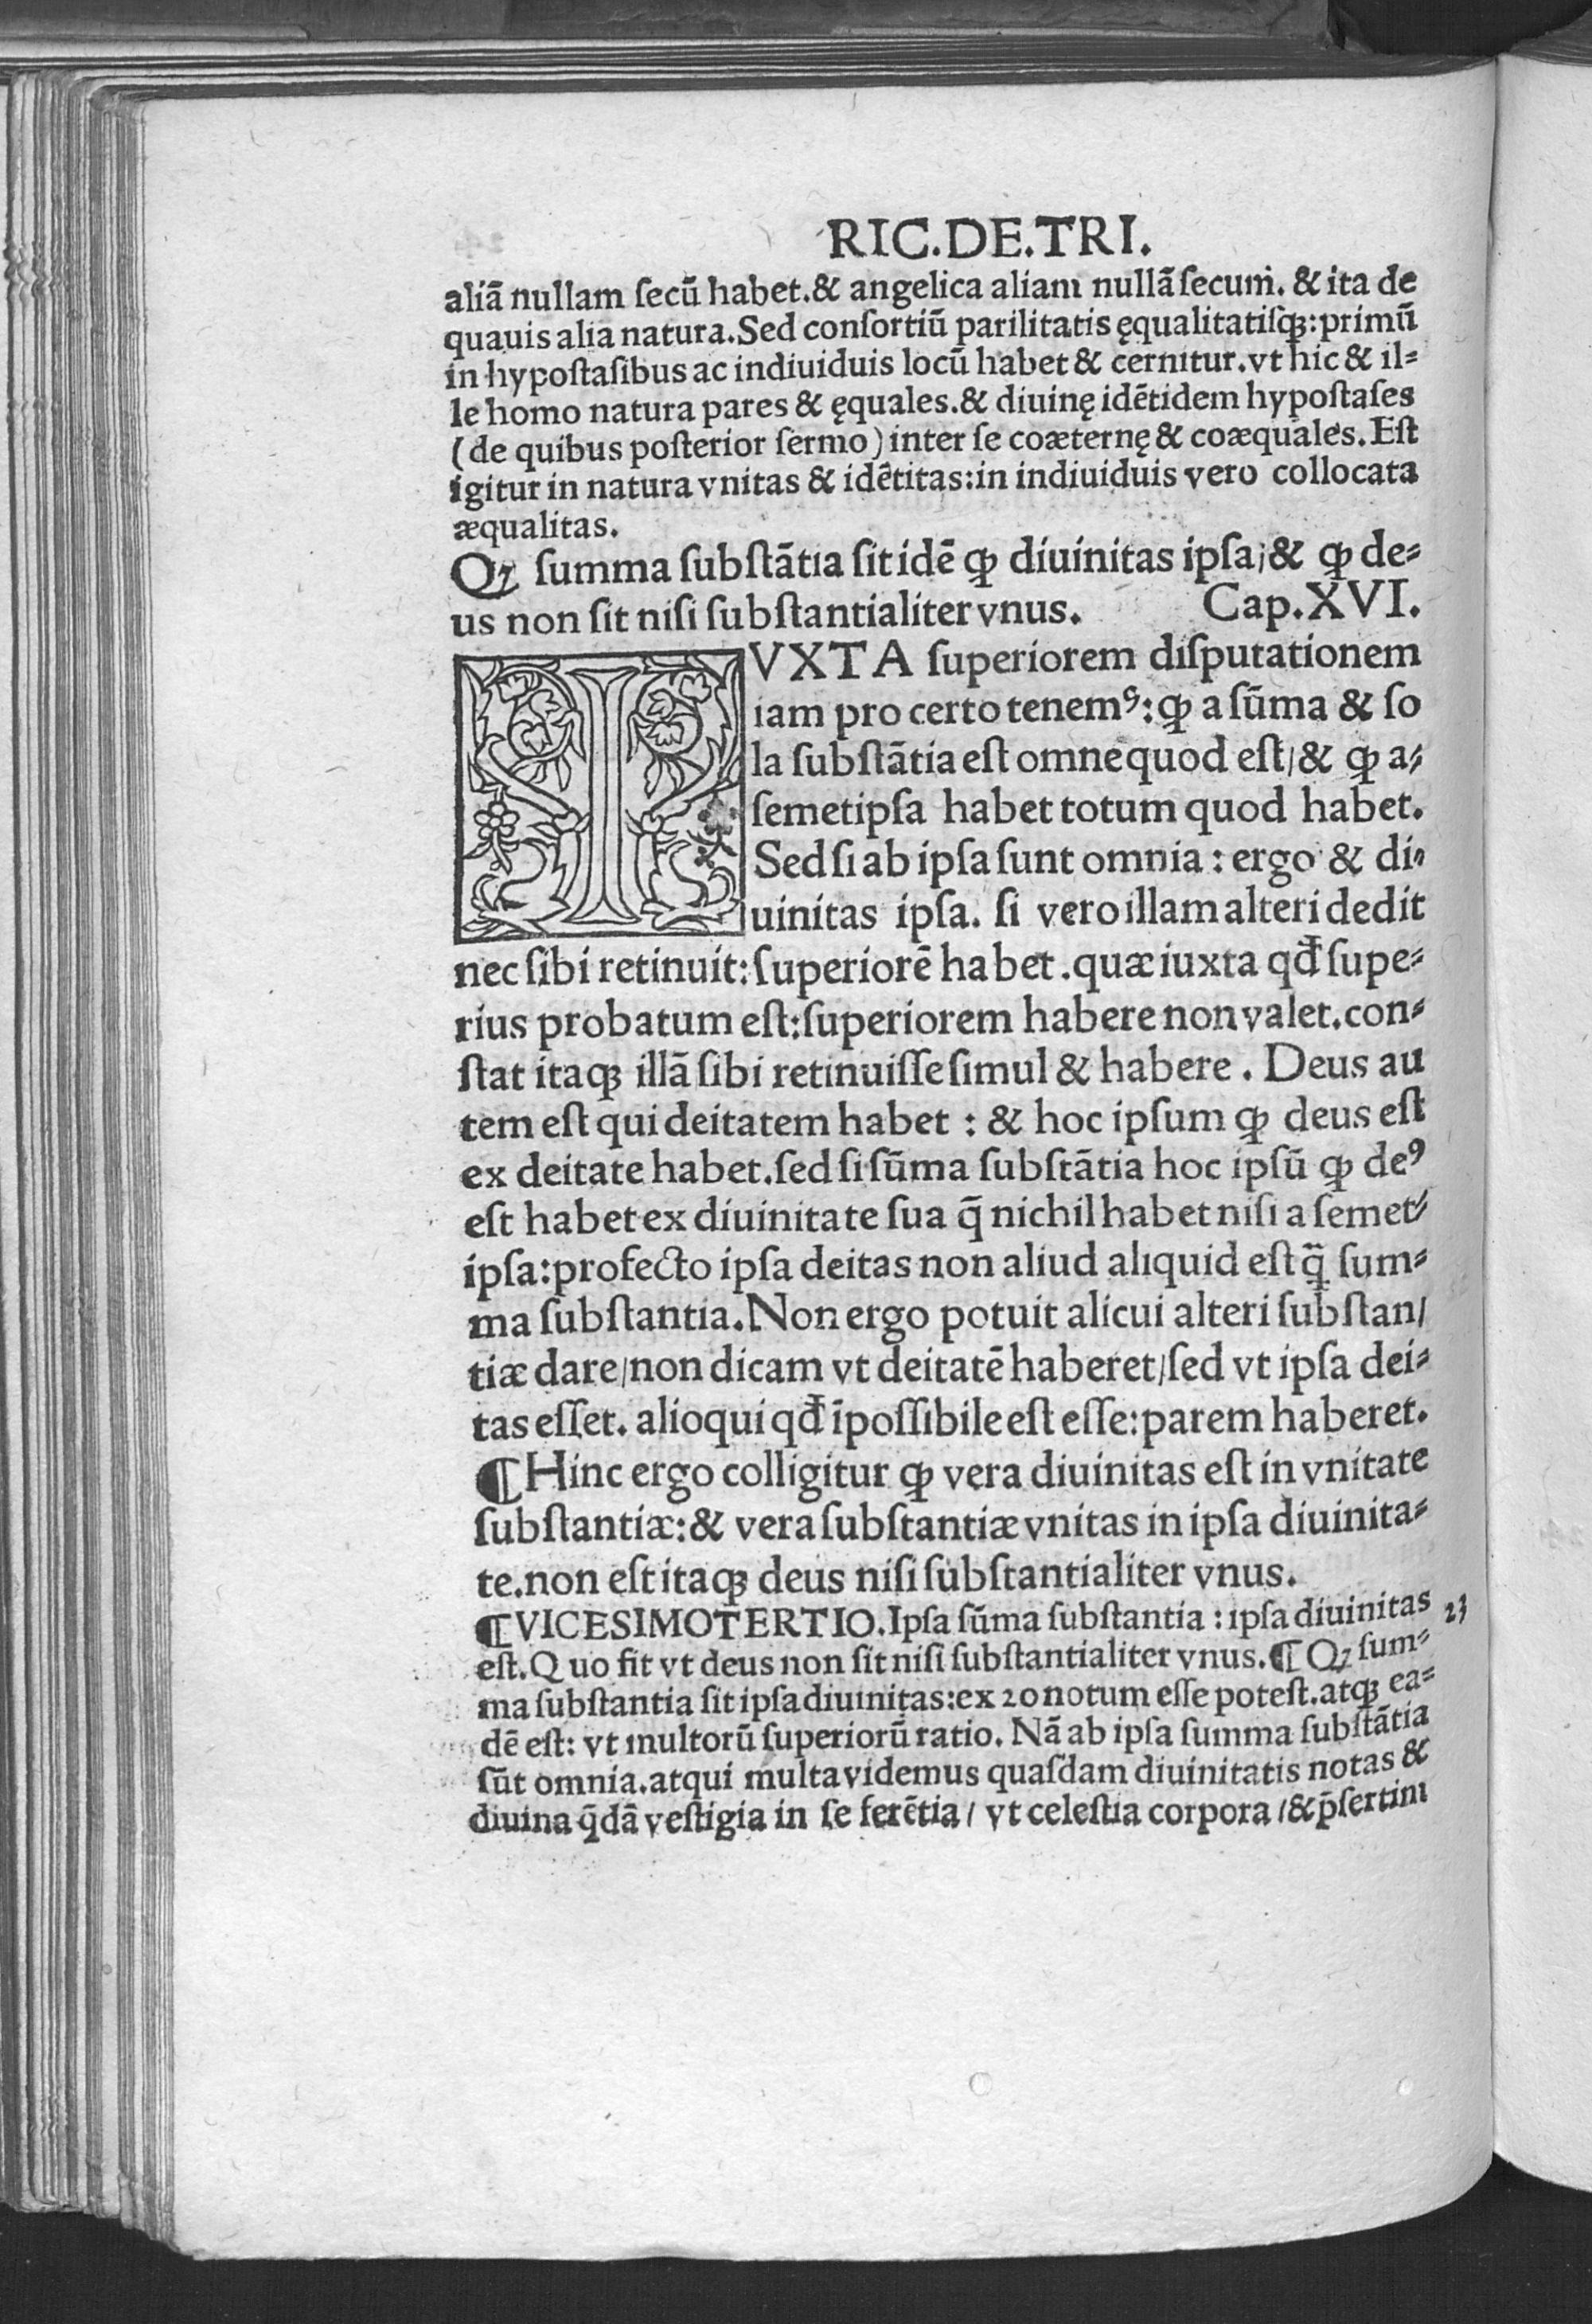 RIC.DE.TRI.
aliā nullam ſecū habet.& angelica aliam nullā ſecum. & ita de
quauis alia natura.Sed conſortiū parilitatis ęqualitatiſqꝫ:primū
in hypoſtaſibus ac indiuiduis locū habet & cernitur.vt hic & il⸗
le homo natura pares & ęquales.& diuinę idētidem hypoſtaſes
(de quibus poſterior ſermo) inter ſe coæternę & coæquales. Eſt
igitur in natura vnitas & idētitas:in indiuiduis vero collocata
æqualitas.
Qꝫ ſumma ſubſtātia ſit idē ꝙ diuinitas ipſa/& ꝙ de⸗
us non ſit niſi ſubſtantialiter vnus. Cap.XVI.
IVXTA ſuperiorem diſputationem
iam pro certo tenemꝰ:ꝙ a ſūma & ſo
la ſubſtātia eſt omne quod eſt/& ꝙ a⸗
ſemetipſa habet totum quod habet.
Sed ſi ab ipſa ſunt omnia : ergo & di⸗
uinitas ipſa. ſi vero illam alteri dedit
nec ſibi retinuit:ſuperiorē habet .quæ iuxta qđ ſupe⸗
rius probatum eſt:ſuperiorem habere non valet.con⸗
ſtat itaqꝫ illā ſibi retinuiſſe ſimul & habere . Deus au
tem eſt qui deitatem habet : & hoc ipſum ꝙ deus eſt
ex deitate habet.ſed ſi ſūma ſubſtātia hoc ipſū ꝙ deꝰ
eſt habet ex diuinitate ſua q̄ nichil habet niſi a ſemet⸗
ipſa:profecto ipſa deitas non aliud aliquid eſt ꝗ̄ ſum⸗
ma ſubſtantia.Non ergo potuit alicui alteri ſubſtan/
tiæ dare/non dicam vt deitatē haberet/ſed vt ipſa dei⸗
tas eſſet. alioqui qđ īpoſſibile eſt eſſe:parem haberet.
¶Hinc ergo colligitur ꝙ vera diuinitas eſt in vnitate
ſubſtantiæ:& vera ſubſtantiæ vnitas in ipſa diuinita⸗
te.non eſt itaqꝫ deus niſi ſubſtantialiter vnus.
¶VICESIMOTERTIO.Ipſa ſūma ſubſtantia : ipſa diuinitas 23
eſt.Quo fit vt deus non ſit niſi ſubſtantialiter vnus.¶ Qꝫ ſum⸗
ma ſubſtantia ſit ipſa diuinitas:ex 20 notum eſſe poteſt.atqꝫ ea⸗
dē eſt: vt multorū ſuperiorū ratio. Nā ab ipſa ſumma ſubſtātia
ſūt omnia.atqui multa videmus quaſdam diuinitatis notas &
diuina q̄dā veſtigia in ſe ferētia/ vt celeſtia corpora /& p̄ſertim